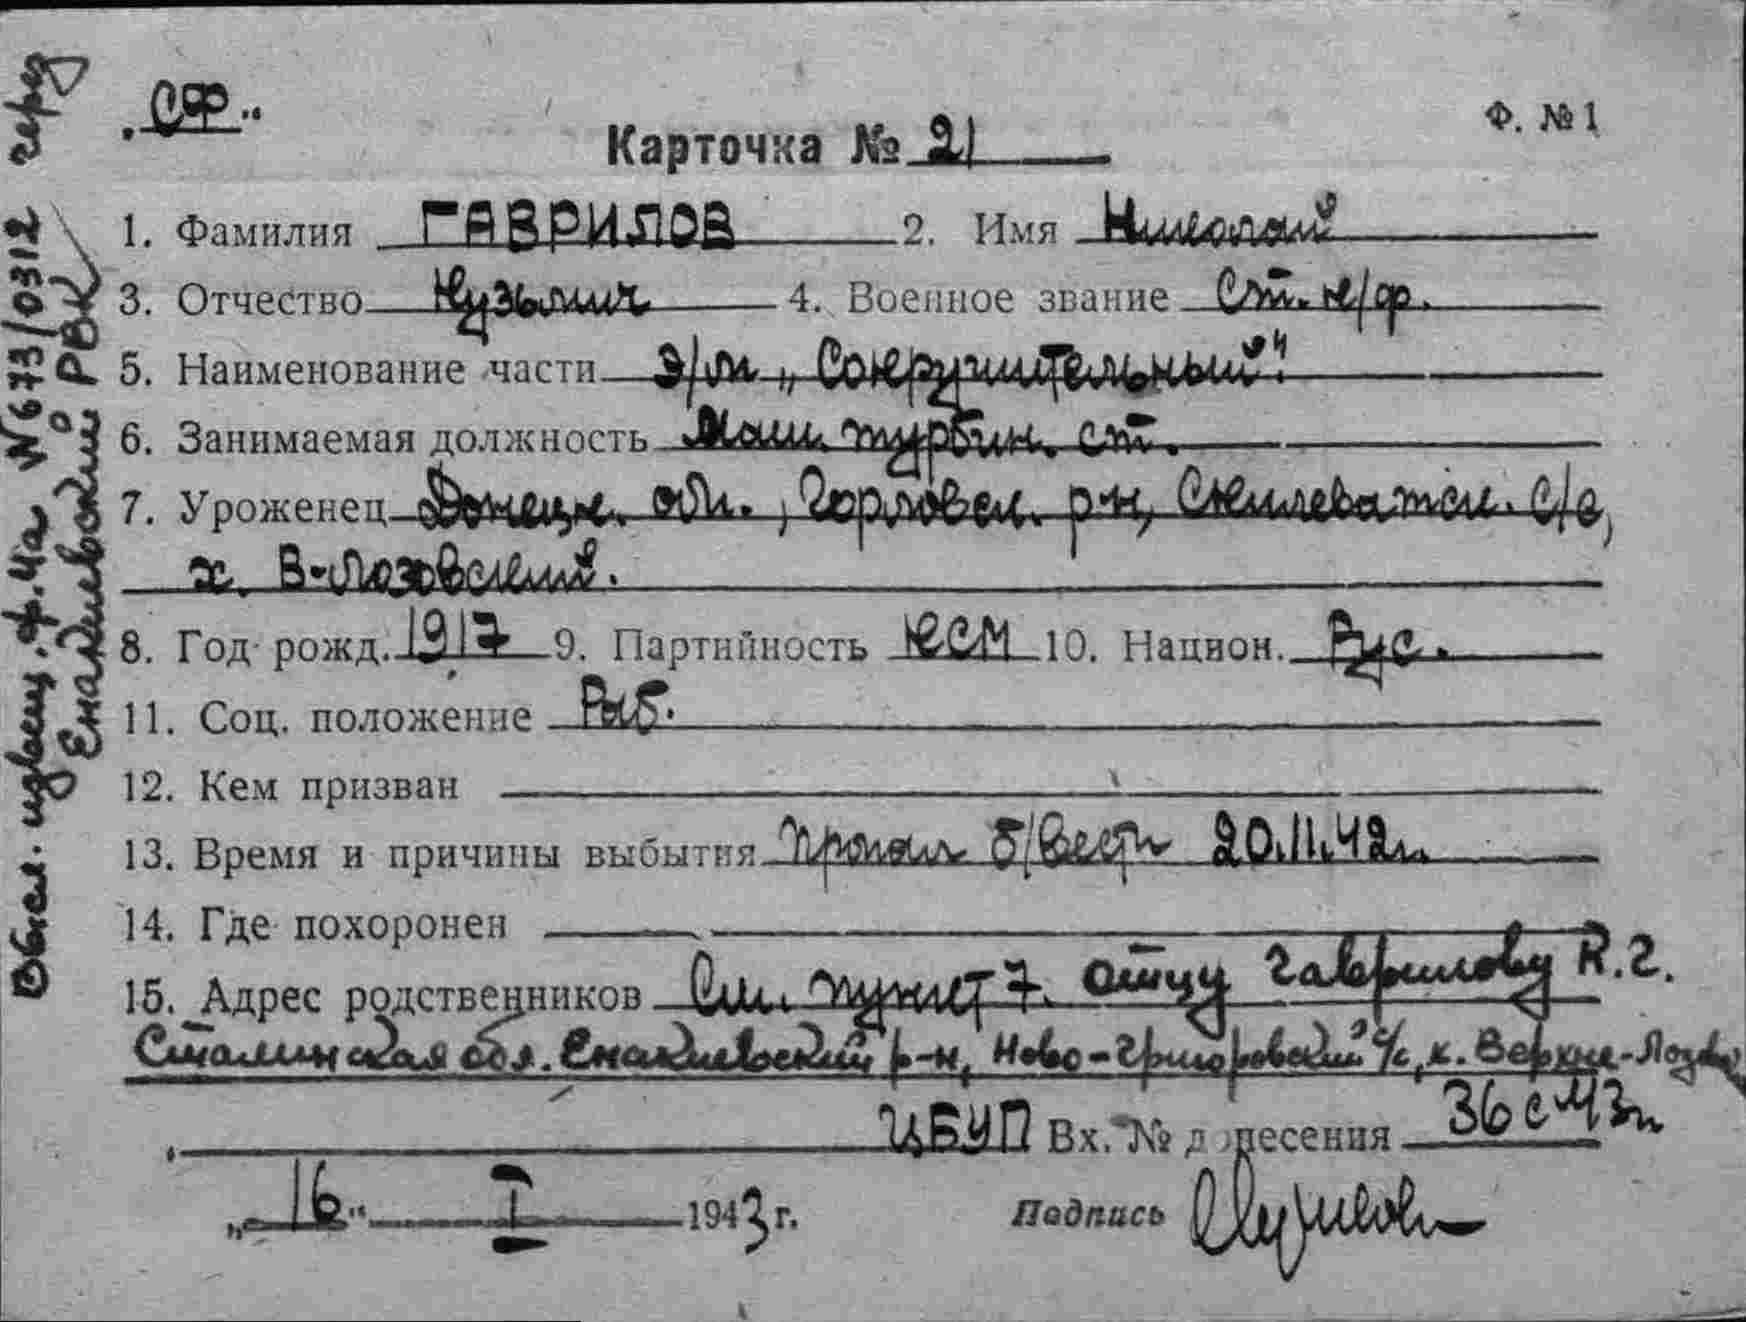 „СФ"
Ф. №1
Карточка № 21
1. Фамилия ГАВРИЛОВ 2. Имя Николай
3. Отчество Кузьмич 4. Военное звание Ст. к/ф.
5. Наименование части Э/м „Сокрушительный"
6. Занимаемая должность Маш. турбин. ст.
7. Уроженец Донецк. обл., Горловск. р-н, Скилеватск. с/с,
х. В-Лозовский.
8. Год рожд. 1917 9. Партийность КСМ 10. Национ. Рус.
11. Соц. положение Раб.
12. Кем призван
13. Время и причины выбытия Пропал б/вести 20.11.42г.
14. Где похоронен
15. Адрес родственников См. пункт 7. Отцу Гаврилову К.Г.
Сталинская обл. Енакиевский р-н, Ново-Григоровский с/с, х. Верхне-Лозов
ЦБУП Вх. № донесения 36с 43г
„16" I 1943 г. Подпись
Высл. извещ. ф.4а №673/0312 через
Енакиевский РВК